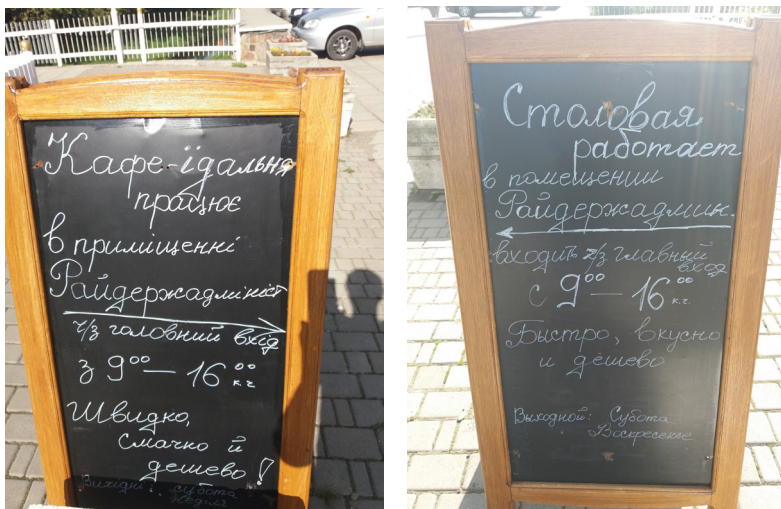 Кафе-їдальня
працює
в приміщенні
Райдержадміністр
ч/з головний вхід
з 9⁰⁰ — 16⁰⁰
к.ч
Швидко,
смачно й
дешево!
Вихідні: субота
неділя
Столовая
работает
в помещении
Райдержадмин.
входить ч/з главный
вход
с 9⁰⁰ — 16⁰⁰
к.ч.
Быстро, вкусно
и дёшево
Выходной: Субота
Воскресенье